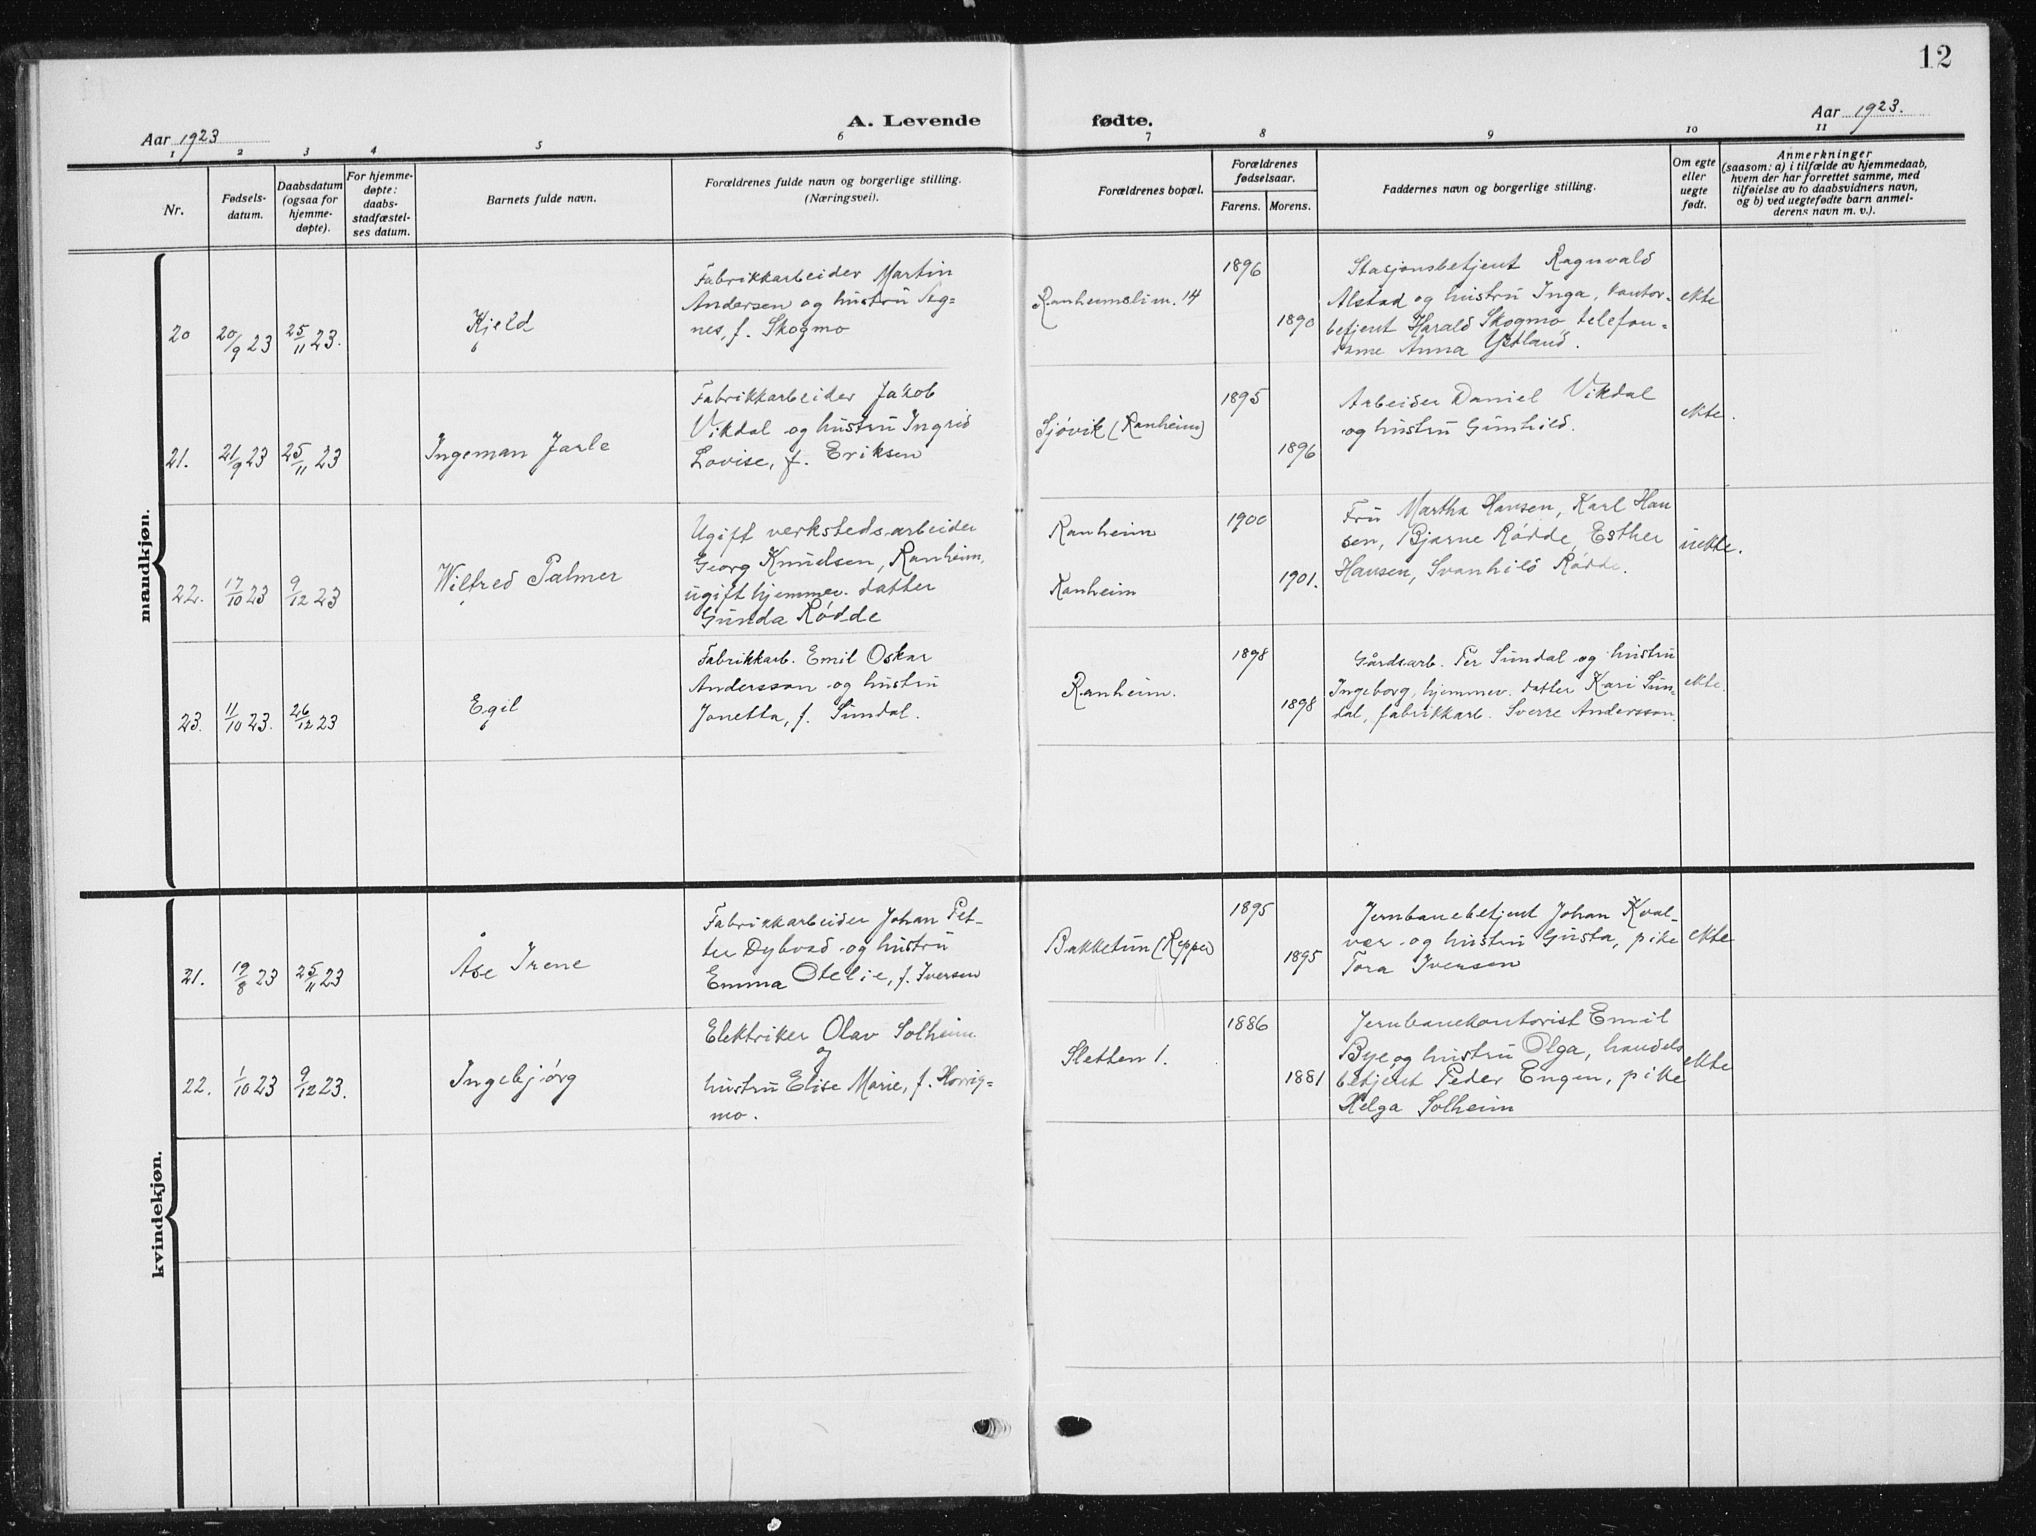 12
A. Levende fødte.
Aar 1923
Aar 1923.
1 2 3 4 5 6 7 8 9 10 11
Nr.
Fødsels-
datum.
Daabsdatum
(ogsaa for
hjemme-
døpte).
For hjemme-
døpte:
daabs-
stadfæstel-
ses datum.
Barnets fulde navn.
Forældrenes fulde navn og borgerlige stilling.
(Næringsvei).
Forældrenes bopæl.
Forældrenes
fødselsaar.
Farens. Morens.
Faddernes navn og borgerlige stilling.
Om egte
eller
uegte
født.
Anmerkninger
(saasom: a) i tilfælde av hjemmedaab,
hvem der har forrettet samme, med
tilføielse av to daabsvidners navn,
og b) ved uegtefødte barn anmel-
derens navn m. v.).
mandkjøn.
20
20/9 23
25/11 23.
Kjeld
Fabrikkarbeider Martin
Andersen og hustru Sig-
nes, f. Skogmo
Ranheimslim. 14
1896
1890
Stasjonsbetjent Ragnvald
Alstad og hustru Inga, kontor-
betjent Harald Skogmo, telefon-
dame Anna
ekte
21.
21/9 23
25/11 23
Ingeman Jarle
Fabrikkarbeider Jakob
Vikdal og hustru Ingrid
Lovise, f. Eriksen
Sjøvik (Ranheim)
1895
1896
Arbeider Daniel Vikdal
og hustru Gunhild.
ekte.
22.
17/10 23
9/12 23
Wilfred Palmer
Ugift verkstedsarbeider
Georg Knudsen, Ranheim,
ugift hjemmev. datter
Gunda Rødde
Ranheim
Ranheim
1900
1901.
Fru Martha Hansen, Karl Han
sen, Bjarne Rødde, Esther
Hansen, Svanhild Rødde.
uekte.
23.
11/10 23.
26/12 23
Egil
Fabrikkarb. Emil Oskar
Andersson og hustru
Jonetta, f. Sundal.
Ranheim.
1898
1898
Gårdsarb. Per Sundal og hustru
Ingeborg, hjemmev. datter Kari Sun-
dal, fabrikkarb. Sverre Andersson.
ekte.
kvindekjøn.
21.
19/8 23
25/11 23
Åse Irene
Fabrikkarbeider Johan Pet-
ter Dybvad og hustru
Emma Otelie, f. Iversen
Bakketun (Reppe)
1895
1895
Jernbanebetjent Johan Kval-
vær og hustru Gusta, pike
Tora Iversen
ekte
22.
1/10 23
9/12 23.
Ingebjørg
Elektriker Olav Solheim
og
hustru Elise Marie, f. Horrig-
mo.
Sletten 1.
1886
1881
Jernbanekontorist Emil
Bye og hustru Olga, handels
betjent Peder Engen, pike
Helga Solheim
ekte